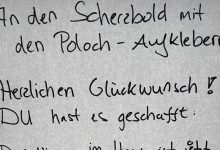 An den Scherebold mit
den Poloch-Aufklebern
Herzlichen Glückwunsch!
DU hast es geschafft: